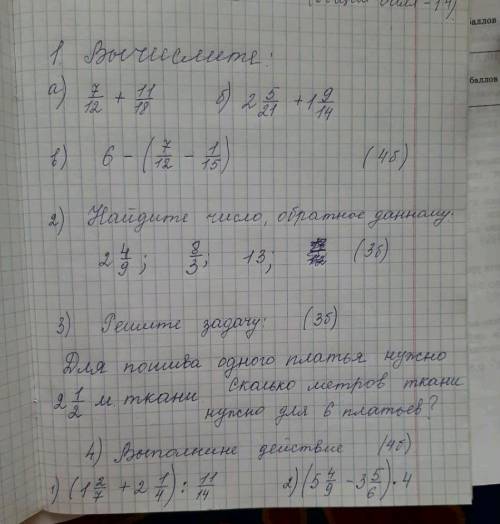 (общий балл - 14)
баллов
баллов
1. Вычислите:
а) 7/12 + 11/18 б) 2 5/21 + 1 9/14
в) 6 - (7/12 - 1/15) (4б)
2) Найдите число, обратное данному:
2 4/9; 8/3; 13; (3б)
3) Решите задачу: (3б)
Для пошива одного платья нужно
2 1/2 м ткани Сколько метров ткани
нужно для 6 платьев?
4) Выполнине действие (4б)
1) (1 2/7 + 2 1/4) : 11/14 2) (5 4/9 - 3 5/6) • 4